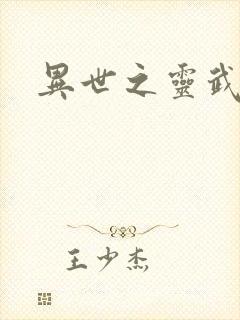 異世之靈武
王少杰